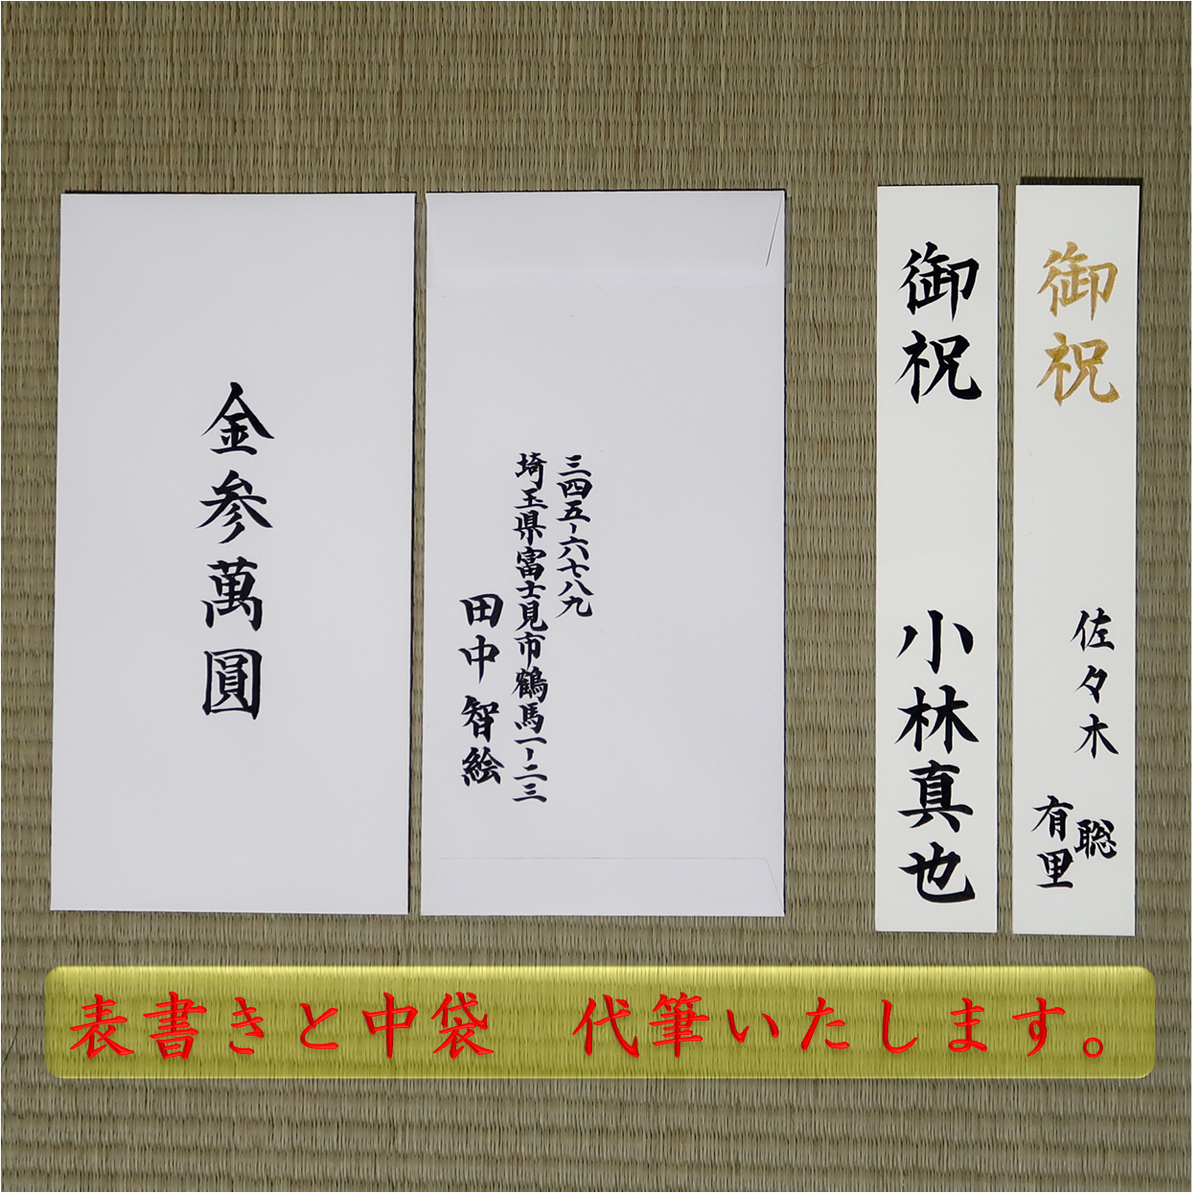 金参萬圓
三四五-六七八九
埼玉県富士見市鶴馬一-二三
田中智絵
御祝
小林真也
御祝
佐々木 聡
有里
表書きと中袋 代筆いたします。